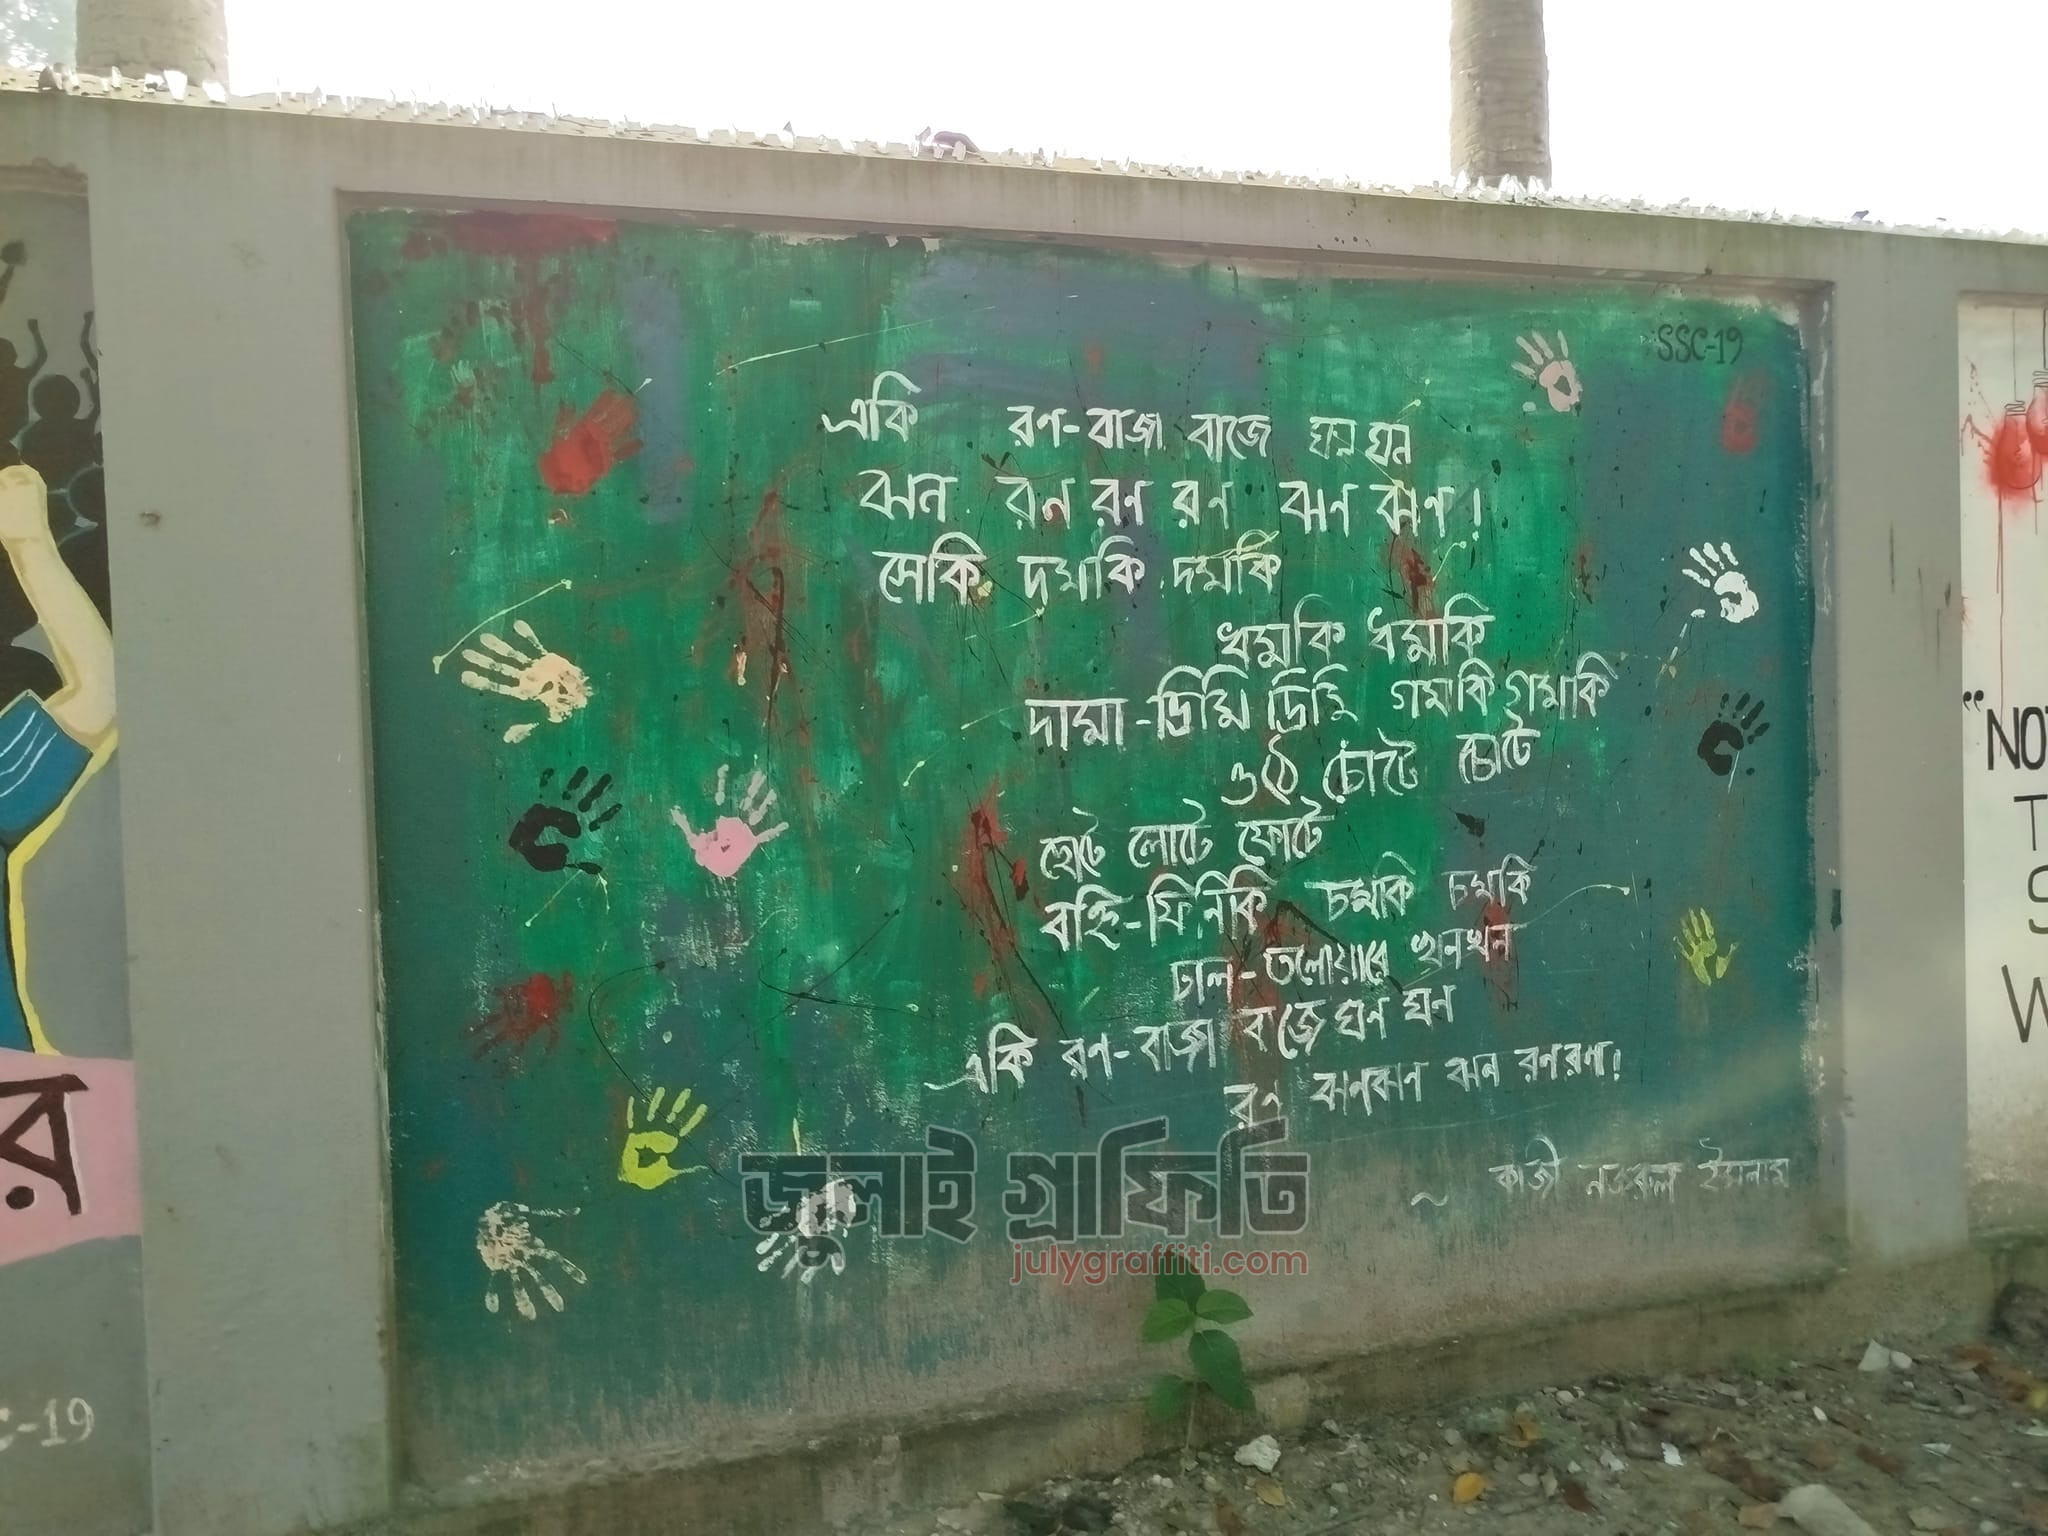 SSC-19
একি রণ-বাজা বাজে ঘন ঘন
ঝন রন রণ রন ঝন ঝণ!
সেকি দমকি দমকি
ধমকি ধমকি
দামা-দ্রিমি দ্রিমি গমকি গমকি
ওঠে চোটে চোটে
ছোটে লোটে ফোটে
বহ্নি-ফিনিকি চমকি চমকি
ঢাল-তলোয়ারে খনখন
একি রণ-বাজা বাজে ঘণ ঘণ
রণ ঝনঝণ ঝন রণরণ!
~ কাজী নজরুল ইসলাম
জুলাই গ্রাফিতি
julygraffiti.com
র
-19
"NO